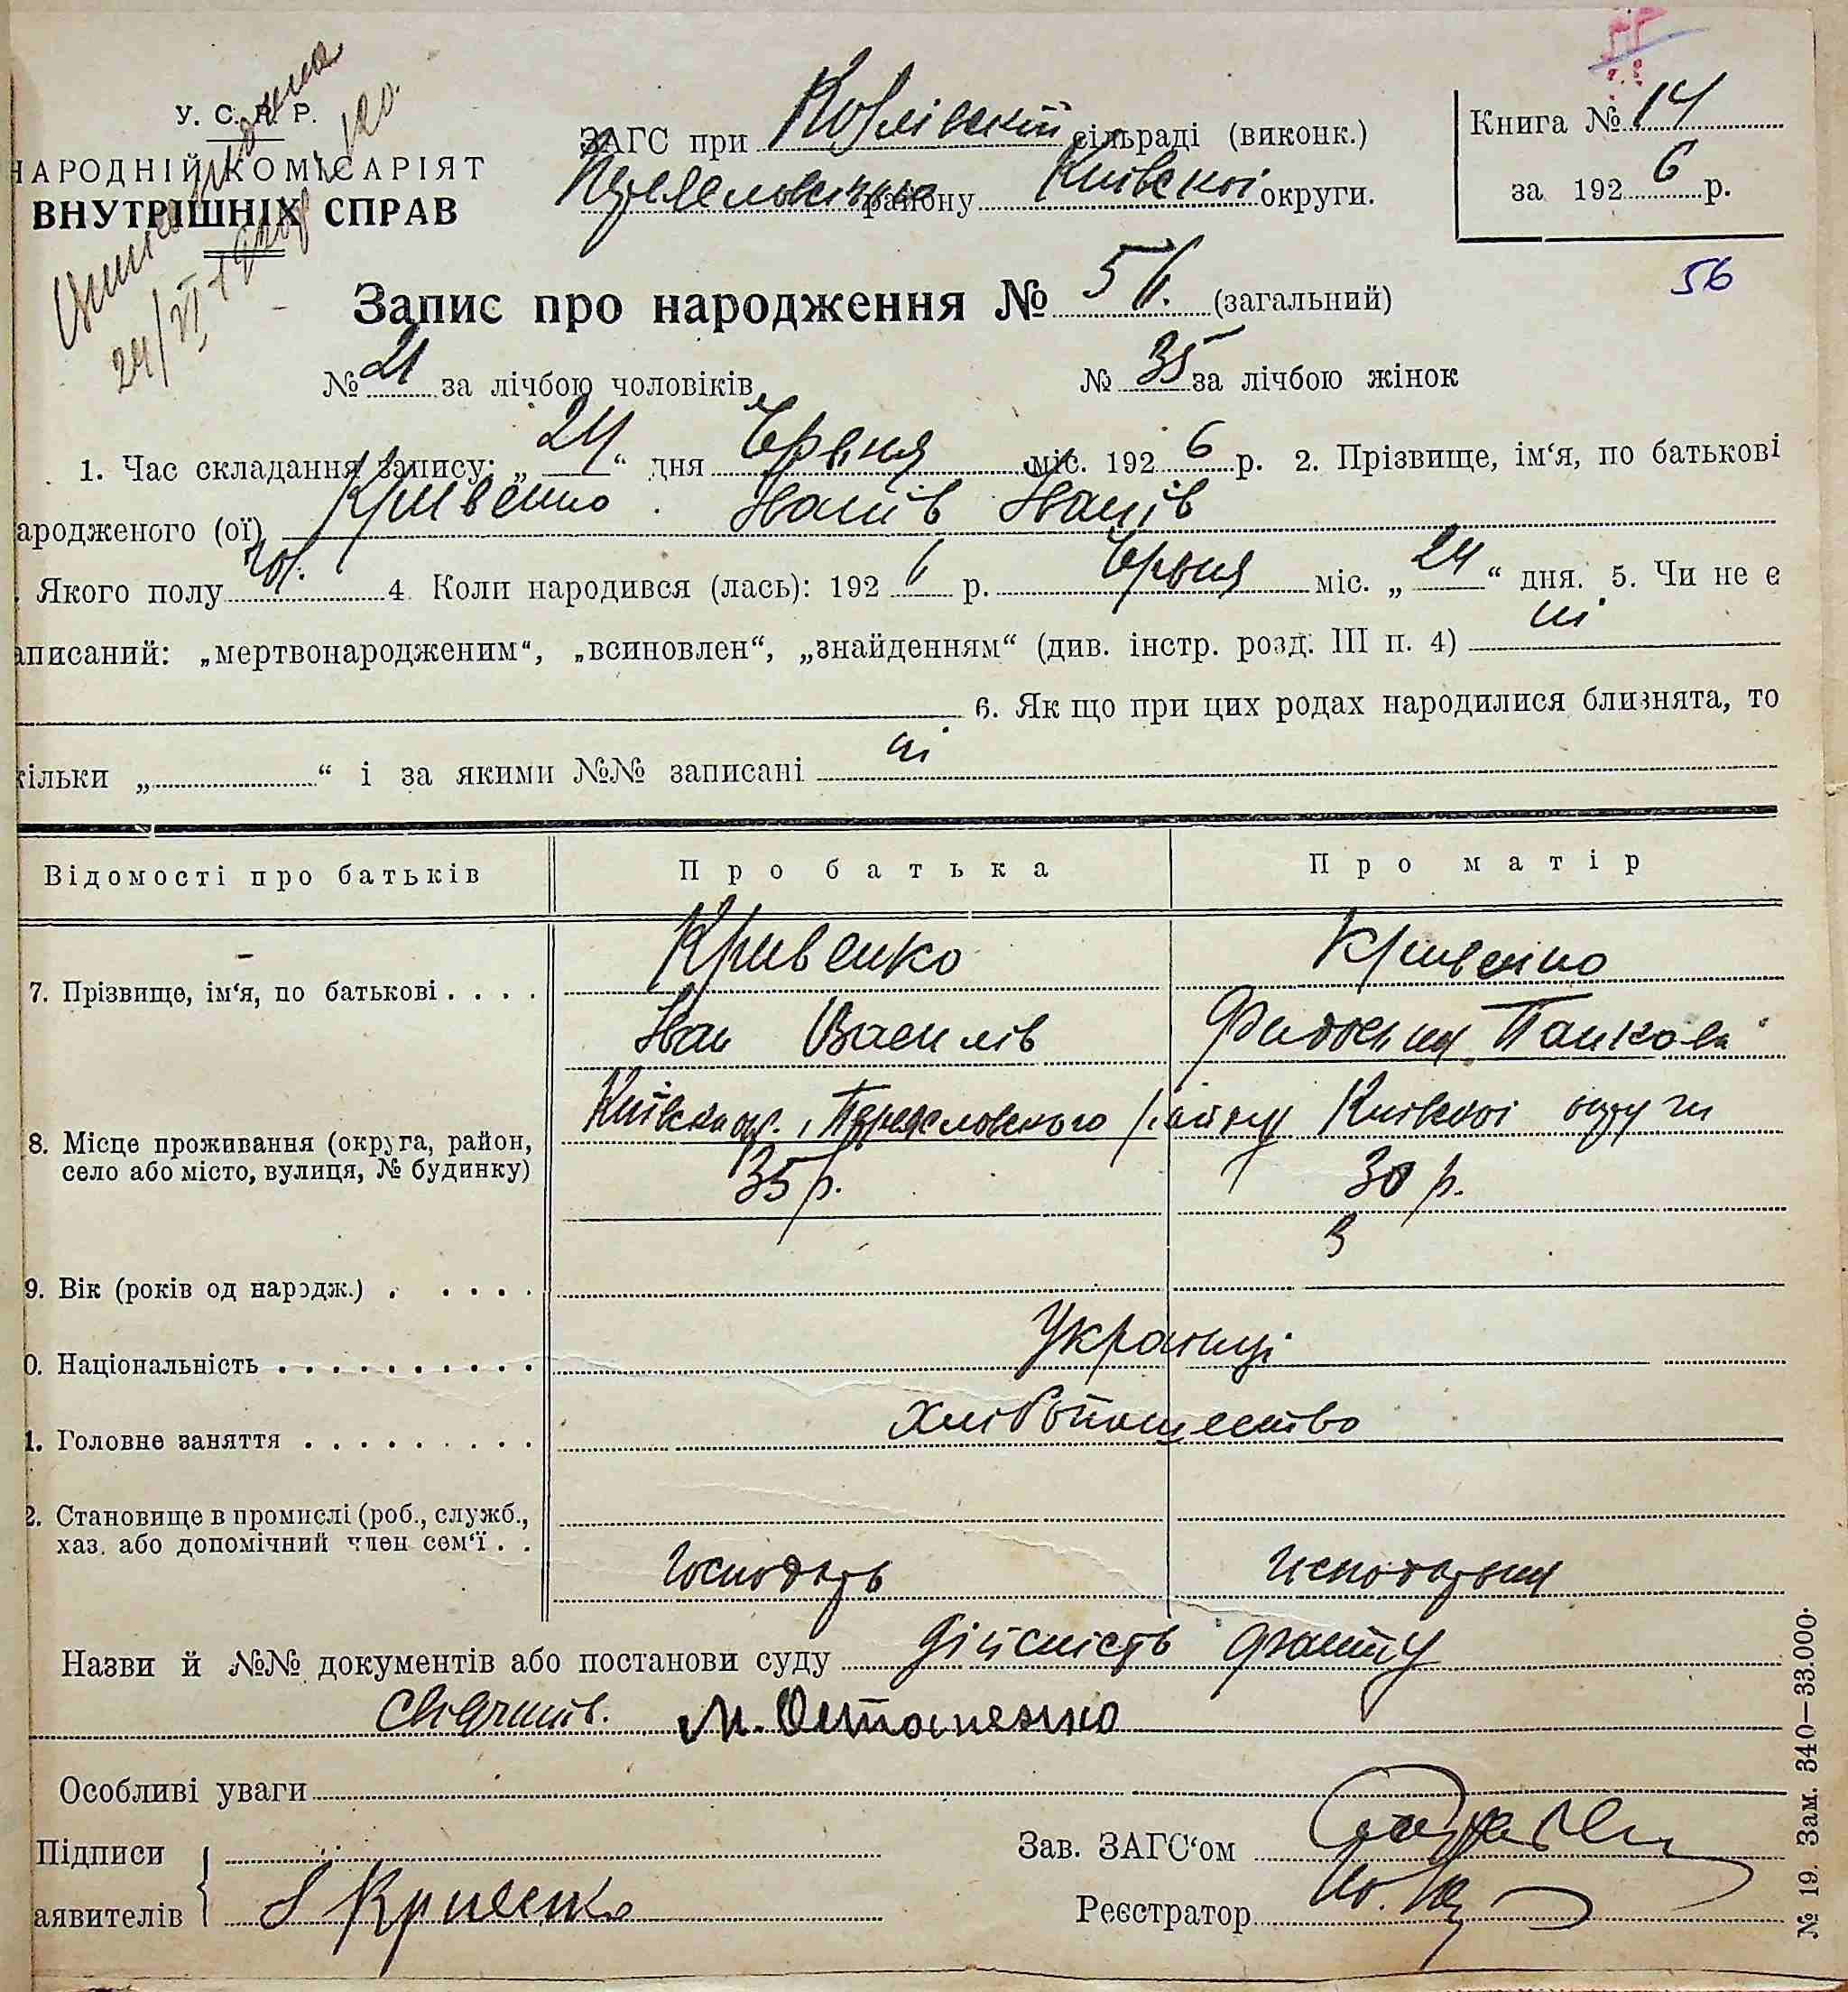 У. С. Р. Р.
НАРОДНІЙ КОМІСАРІЯТ
ВНУТРІШНІХ СПРАВ
ЗАГС при сільраді (виконк.)
району Київської округи.
Книга № 14
за 1926 р.
56
Запис про народження № 56. (загальний)
№ 21 за лічбою чоловіків
№ 35 за лічбою жінок
1. Час складання запису: „24“ дня Червня міс. 1926 р. 2. Прізвище, ім‘я, по батькові
ародженого (ої) Кривенко Іванів
Якого полу чол. 4. Коли народився (лась): 1926 р. Червня міс. „24“ дня. 5. Чи не є
аписаний: „мертвонародженим“, „всиновлен“, „знайденням“ (див. інстр. розд. III п. 4) ні
6. Як що при цих родах народилися близнята, то
кільки „ “ і за якими №№ записані ні
Відомості про батьків Про батька Про матір
Кривенко Кривенко
7. Прізвище, ім‘я, по батькові . . . .
Іван Василів Панкова
8. Місце проживання (округа, район,
село або місто, вулиця, № будинку)
району Київскої округи
35 р. 30 р.
9. Вік (років од народж.) . . . . .
0. Національність . . . . . . . . . . Українці
1. Головне заняття . . . . . . . . .
2. Становище в промислі (роб., служб.,
хаз. або допомічний член сем‘ї . .
господарь господарка
Назви й №№ документів або постанови суду дійсність факту
М. Остапенко
Особливі уваги
Підписи
аявителів
Кривенко
Зав. ЗАГС‘ом
Реєстратор
№ 19. Зам. 340—33.000.